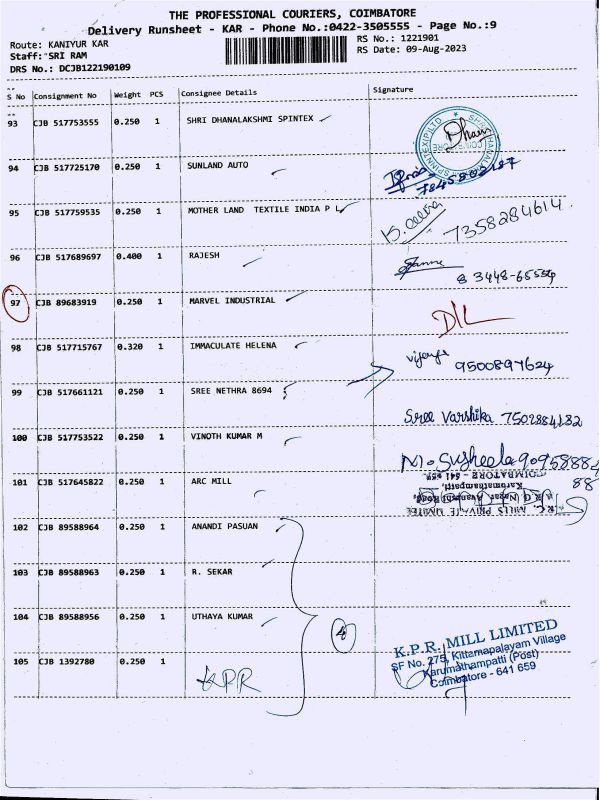 THE PROFESSIONAL COURIERS, COIMBATORE
Delivery Runsheet - KAR - Phone No.:0422-3505555 - Page No.:9
Route: KANIYUR KAR
RS No.: 1221901
Staff: SRI RAM
RS Date: 09-Aug-2023
DRS No.: DCJB122190109
S No Consignment No Weight PCS Consignee Details Signature
93 CJB 517753555 0.250 1 SHRI DHANALAKSHMI SPINTEX
94 CJB 517725170 0.250 1 SUNLAND AUTO
95 CJB 517759535 0.250 1 MOTHER LAND TEXTILE INDIA P L
7358284614.
96 CJB 517689697 0.400 1 RAJESH
97 CJB 89683919 0.250 1 MARVEL INDUSTRIAL
D/L
98 CJB 517715767 0.320 1 IMMACULATE HELENA
9500897624
99 CJB 517661121 0.250 1 SREE NETHRA 8694
Sree Varshika 7502884182
100 CJB 517753522 0.250 1 VINOTH KUMAR M
M. Susheela 90958884
88
101 CJB 517645822 0.250 1 ARC MILL
102 CJB 89588964 0.250 1 ANANDI PASUAN
103 CJB 89588963 0.250 1 R. SEKAR
104 CJB 89588956 0.250 1 UTHAYA KUMAR
4
K.P.R. MILL LIMITED
SF No. 275, Kittampalayam Village
Karumathampatti (Post)
Coimbatore - 641 659
105 CJB 1392780 0.250 1 KPR